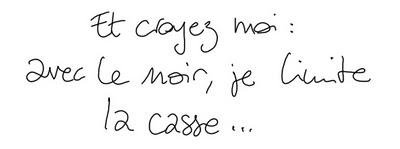 Et croyez moi :
avec le noir, je limite
la casse...